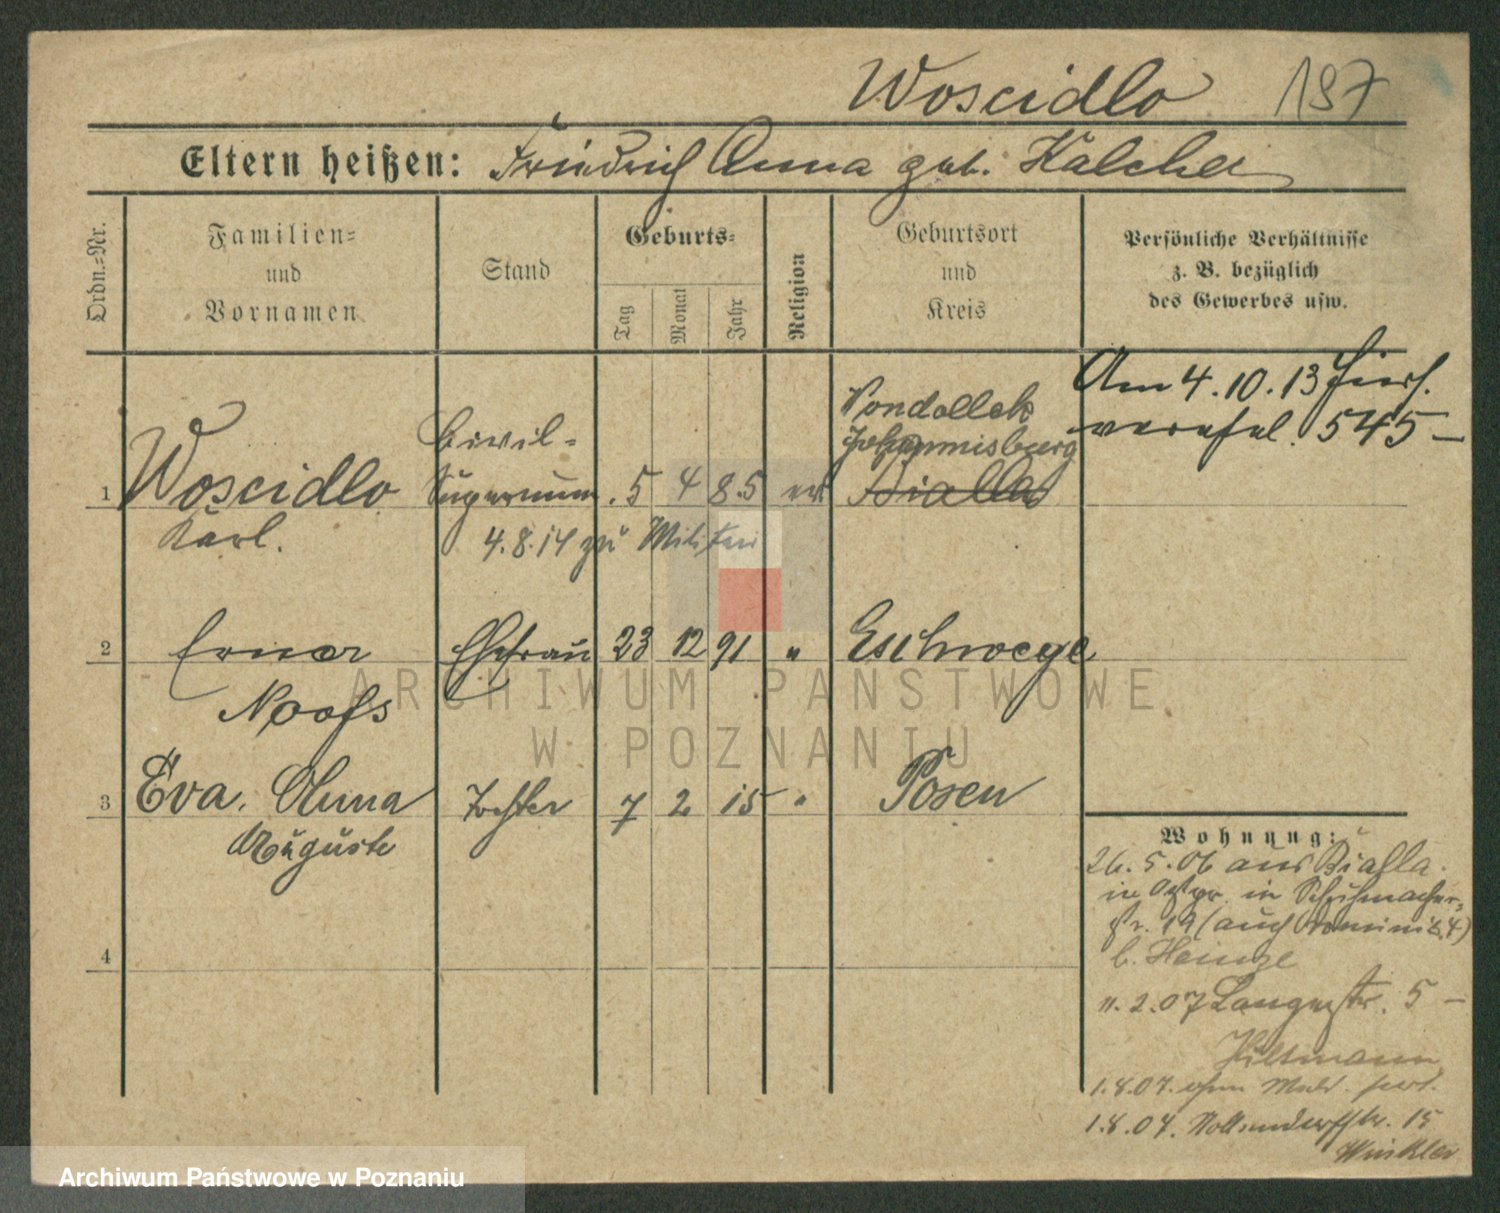 Woscidlo 197
Eltern heißen: Friedrich Anna geb. Kalcher
Ordn.=Nr.
Familien=
und
Vornamen
Stand
Geburts=
Tag
Monat
Jahr
Religion
Geburtsort
und
Kreis
Persönliche Verhältnisse
z. B. bezüglich
des Gewerbes usw.
Am 4.10.13 hier
verehel. 545
1 Woscidlo
Karl.
Civil=
Supernum. 5 4 85 ev
Johannisburg
Bialla
4.8.14 zu Militär
2 Erna
Ehefrau 23 12 91 " Eschwege
3 Eva, Anna
Auguste
Tochter 7 2 15 " Posen
4
Wohnung:
26.5.06 aus Bialla
in Ostpr. in Schuhmacher=
str. 19 (auch Dominik. 4)
b. Heinze
11.2.07 Langestr. 5
1.8.07.
1.8.07. 15
Winkler
ARCHIWUM PAŃSTWOWE
W POZNANIU
Archiwum Państwowe w Poznaniu